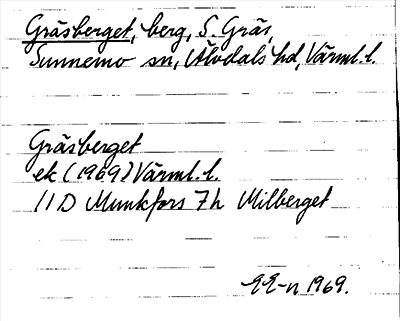 Gräsberget, berg, S. Gräs,
Sunnemo sn, Älvdals hd, Värml. l.
Gräsberget
ek (1969) Värml. l.
11D Munkfors 7h Milberget
EE-n 1969.